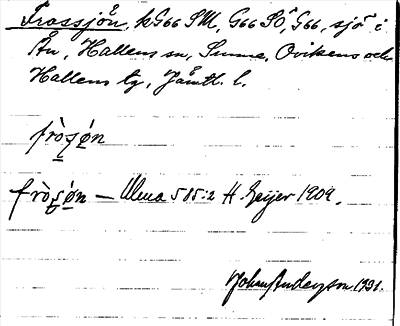 Frossjön, kG66 SM, G66 SO, G66, sjö i
Ån, Hallens sn, Sunne, Ovikens och
Hallens tg, Jämtl. l.
fròʒøn
fròʒøn — Ulma 585:2 H. Geijer 1909.
Johan Anderson 1931.